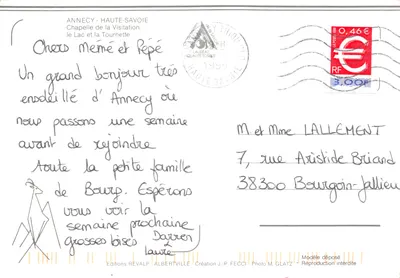 ANNECY - HAUTE-SAVOIE
Chapelle de la Visitation
le Lac et la Tournette
Chers Mémé et Pépé
Un grand bonjour très
ensoleillé d'Annecy où
nous passons une semaine
avant de rejoindre
toute la petite famille
de Bourg. Espérons
vous voir la
semaine prochaine
grosses bises Darren
Laure
0,46€
€
RF
3,00F
M et Mme LALLEMENT
7, rue Aristide Briand
38300 Bourgoin-Jallieu
Modèle déposé
Reproduction interdite